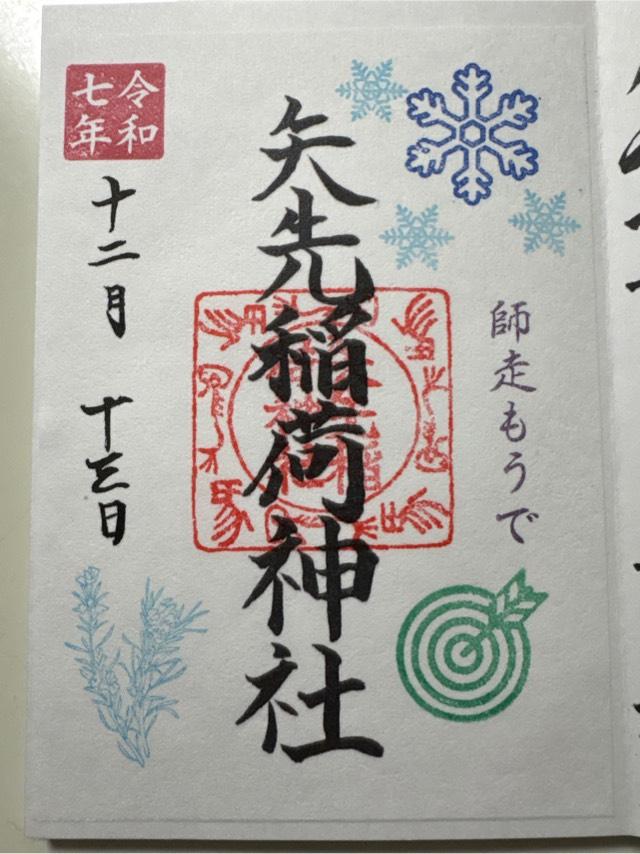 師走もうで
矢先稲荷神社
令和
七年
十二月 十三日